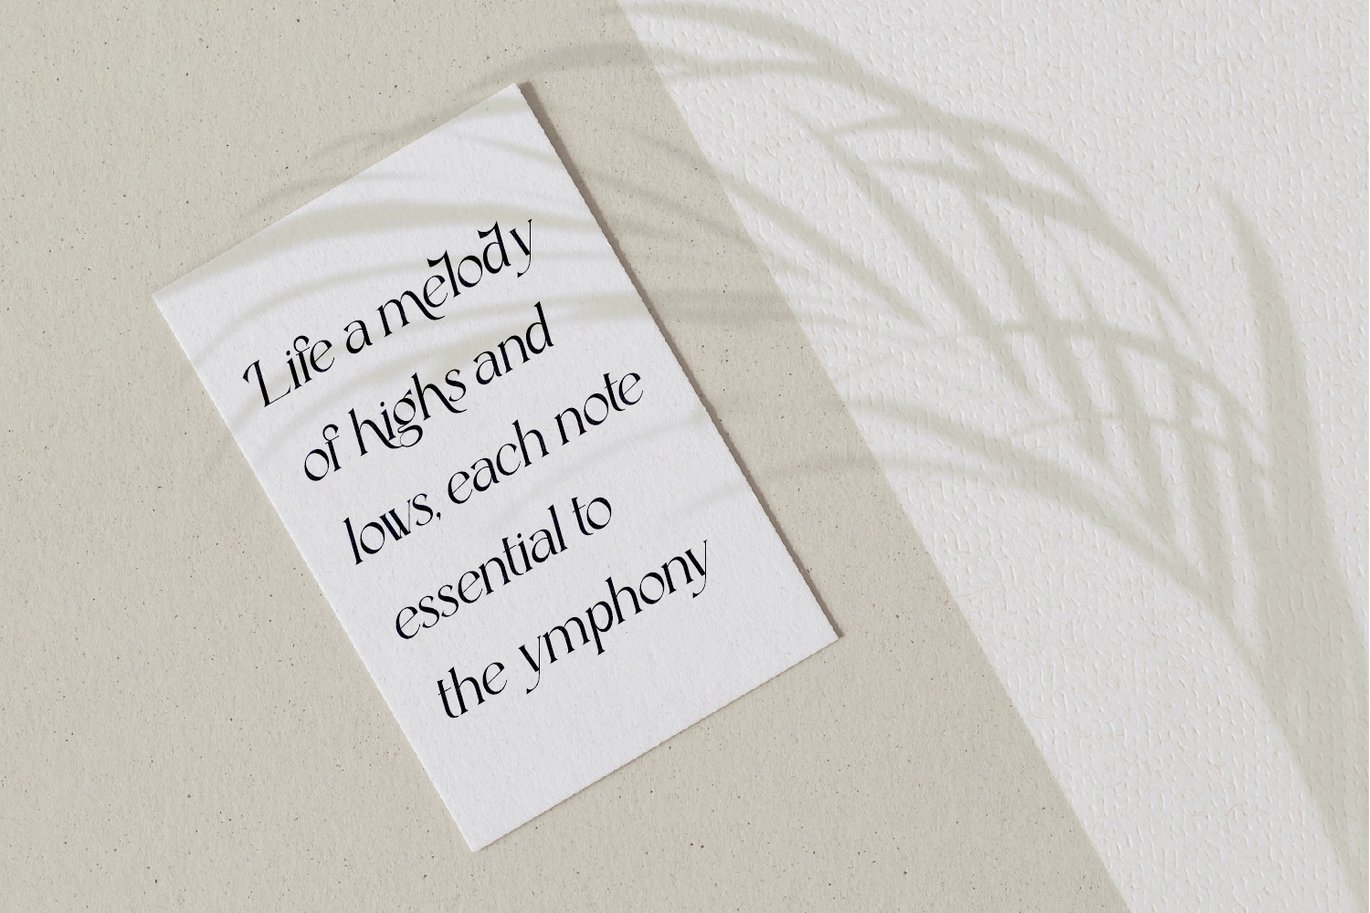 Life a melody
of highs and
lows, each note
essential to
the ymphony